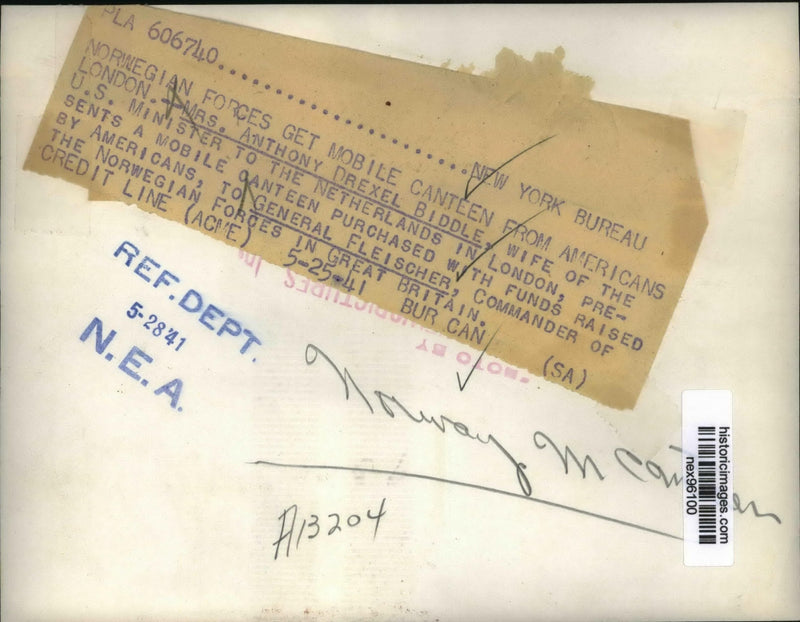 PLA 606740..............................NEW YORK BUREAU
NORWEGIAN FORCES GET MOBILE CANTEEN FROM AMERICANS
LONDON...MRS. ANTHONY DREXEL BIDDLE, WIFE OF THE
U.S. MINISTER TO THE NETHERLANDS IN LONDON, PRE-
SENTS A MOBILE CANTEEN PURCHASED WITH FUNDS RAISED
BY AMERICANS, TO GENERAL FLEISCHER, COMMANDER OF
THE NORWEGIAN FORCES IN GREAT BRITAIN.
CREDIT LINE (ACME) 5-25-41 BUR CAN (SA)
REF. DEPT.
5-28'41
N.E.A.
Norway, M
A13204
historicimages.com
nex96100